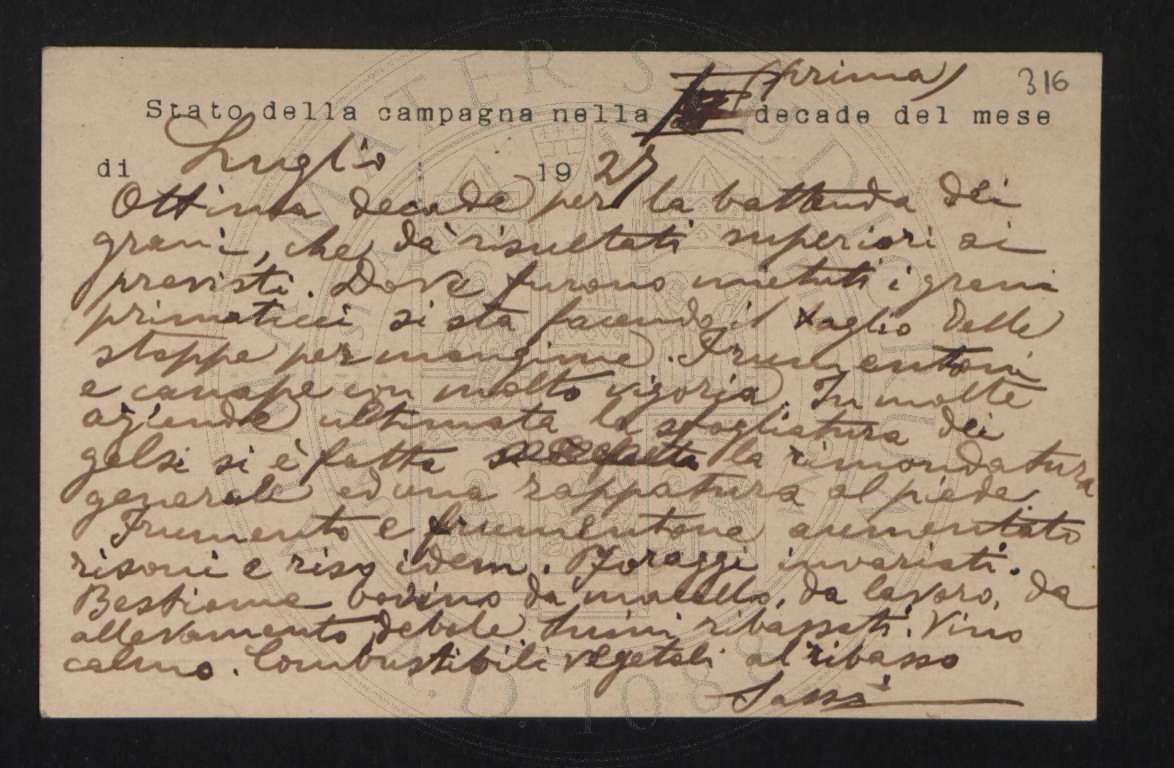 (prima)
316
Stato della campagna nella decade del mese
di Luglio 1927
Ottima decade per la battenda dei
grani, che dà risultati superiori ai
previsti. Dove furono mietuti i grani
primaticci si sta facendo il taglio delle
stoppe per mangime. Frumentoni
e canape con molto vigoria. In molte
aziende ultimata la sfogliatura dei
gelsi si è fatta la rimondatura
generale ed una zappatura al piede
Frumento e frumentone aumentato
risoni e riso idem. Foraggi invariati.
Bestiame bovino da macello, da lavoro, da
allevamento debole. Suini ribassati. Vino
calmo. Combustibili vegetali al ribasso
ALMA MATER STUDIORUM
A.D. 1088